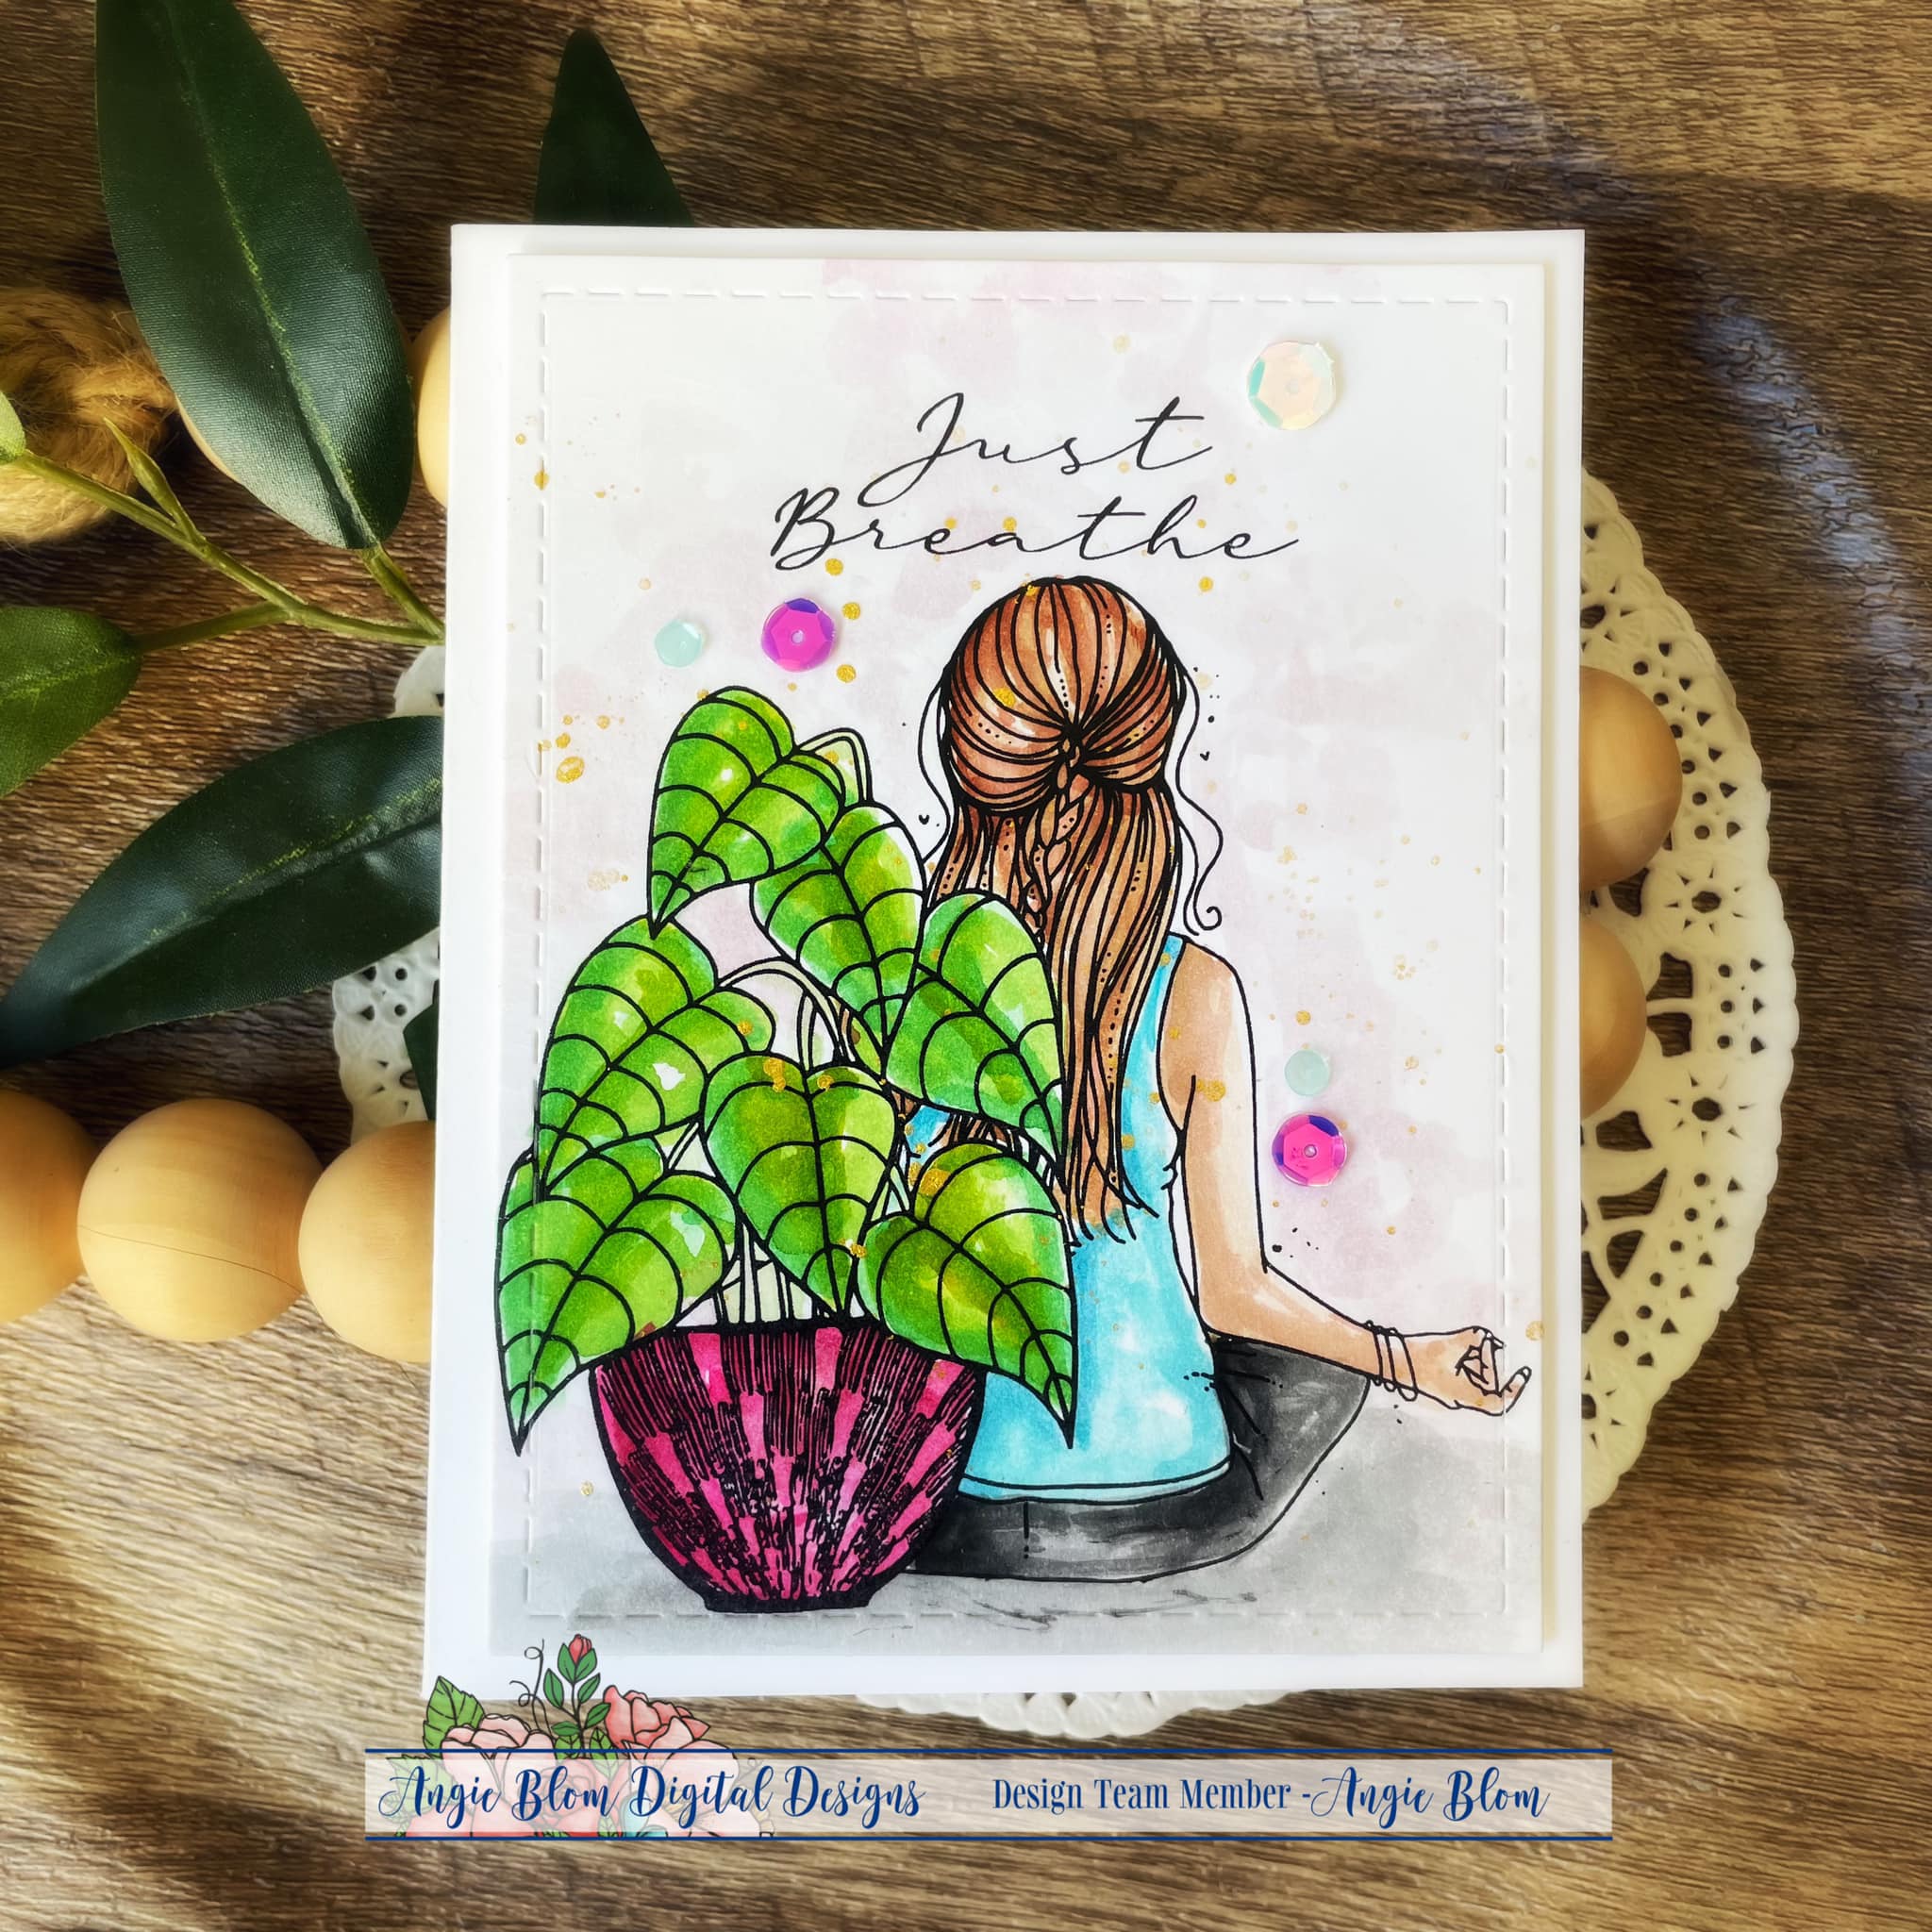 Just
Breathe
Angie Blom Digital Designs Design Team Member -Angie Blom